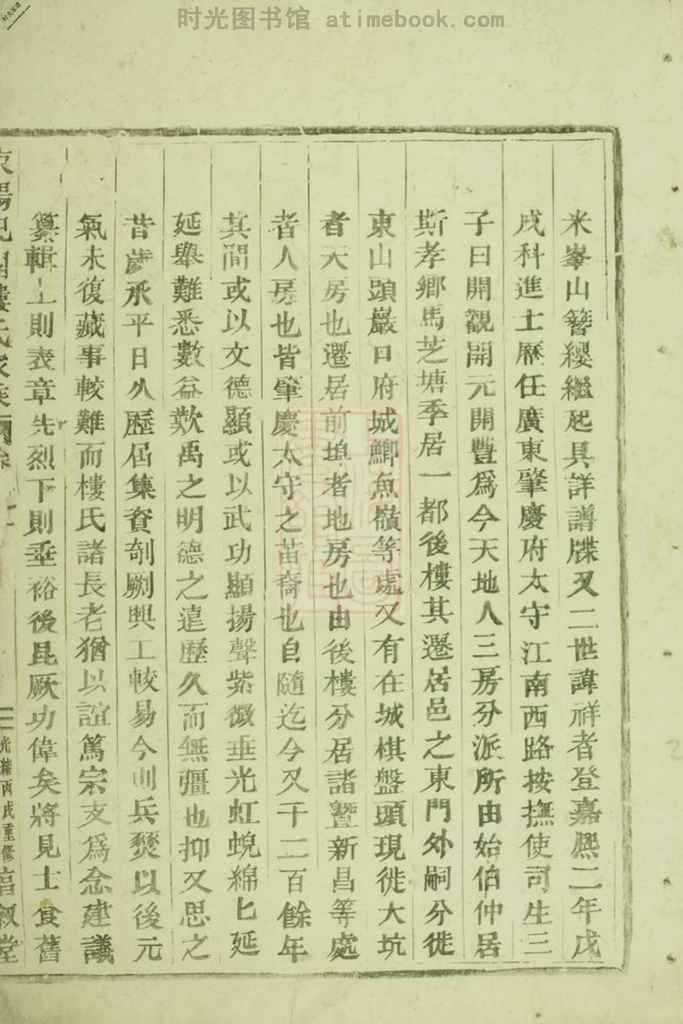 时光图书馆 atimebook.com
米峯山簪纓繼起具詳譜牒又二世諱祥者登嘉熙二年戊
戌科進士歷任廣東肇慶府太守江南西路按撫使司生三
子曰開觀開元開豐爲今天地人三房分派所由始伯仲居
斯孝鄉馬芝塘季居一都後樓其遷居邑之東門外嗣分徙
東山頭巖口府城鯽魚嶺等處又有在城棋盤頭現徙大坑
者天房也遷居前埠者地房也由後樓分居諸暨新昌等處
者人房也皆肇慶太守之苗裔也自隨迄今又千二百餘年
其間或以文德顯或以武功顯揚聲紫微垂光虹蜺綿匕延
延舉難悉數益歎禹之明德之遠歷久而無彊也抑又思之
昔歲承平日久歷屆集資剞劂興工較易今則兵燹以後元
氣未復蕆事較難而樓氏諸長老猶以誼篤宗支爲念建議
纂輯上則表章先烈下則垂裕後昆厥功偉矣將見士食舊
樓氏家族
光緒丙戌重修
敘堂